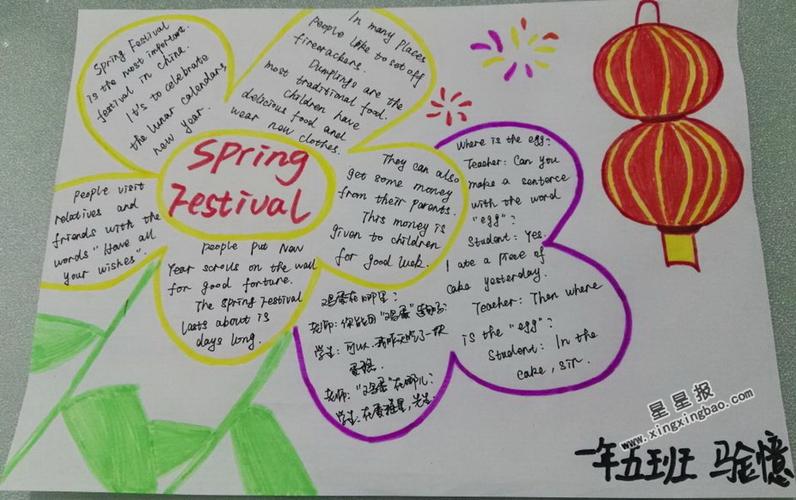 Spring Festival
Spring Festival
is the most important
festival in China.
It's to celebrate
the lunar calendars
new year.
In many places
people like to set off
firecrackers.
Dumplings are the
most traditional food.
Children have
delicious food and
wear new clothes.
They can also
get some money
from their parents.
This money is
given to children
for good luck.
people put New
Year scrolls on the wall
for good fortune.
The Spring Festival
lasts about is
days long.
People visit
relatives and
friends with the
words "Have all
your wishes".
Where is the egg?
Teacher: Can you
make a sentence
with the word
"egg"?
Student: Yes.
I ate a piece of
cake yesterday.
Teacher: Then where
is the "egg"?
Student: In the
cake, sir.
鸡蛋在哪里?
老师: 你能用"鸡蛋"造句吗?
学生: 可以. 我昨天吃了一块
蛋糕.
老师: "鸡蛋"在哪儿?
学生: 在蛋糕里, 先生.
星星报
www.xingxingbao.com
一年五班